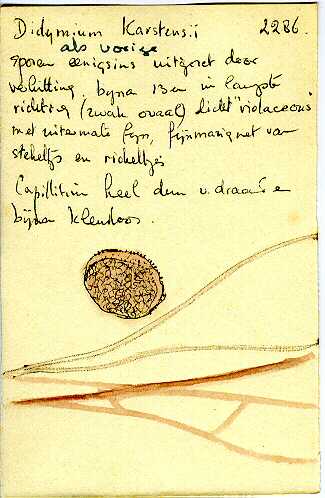 Didymium Karstensii 2286.
als vorige
sporen eenigsins uitgezet door
verhitting, bijna 13 en in langste
richting (zwak ovaal) dicht "violaceous"
met uitermate fijn, fijnmazig net van
stekeltjes en richeltjes
Capillitium heel dun v. draad e
bijna kleurloos.